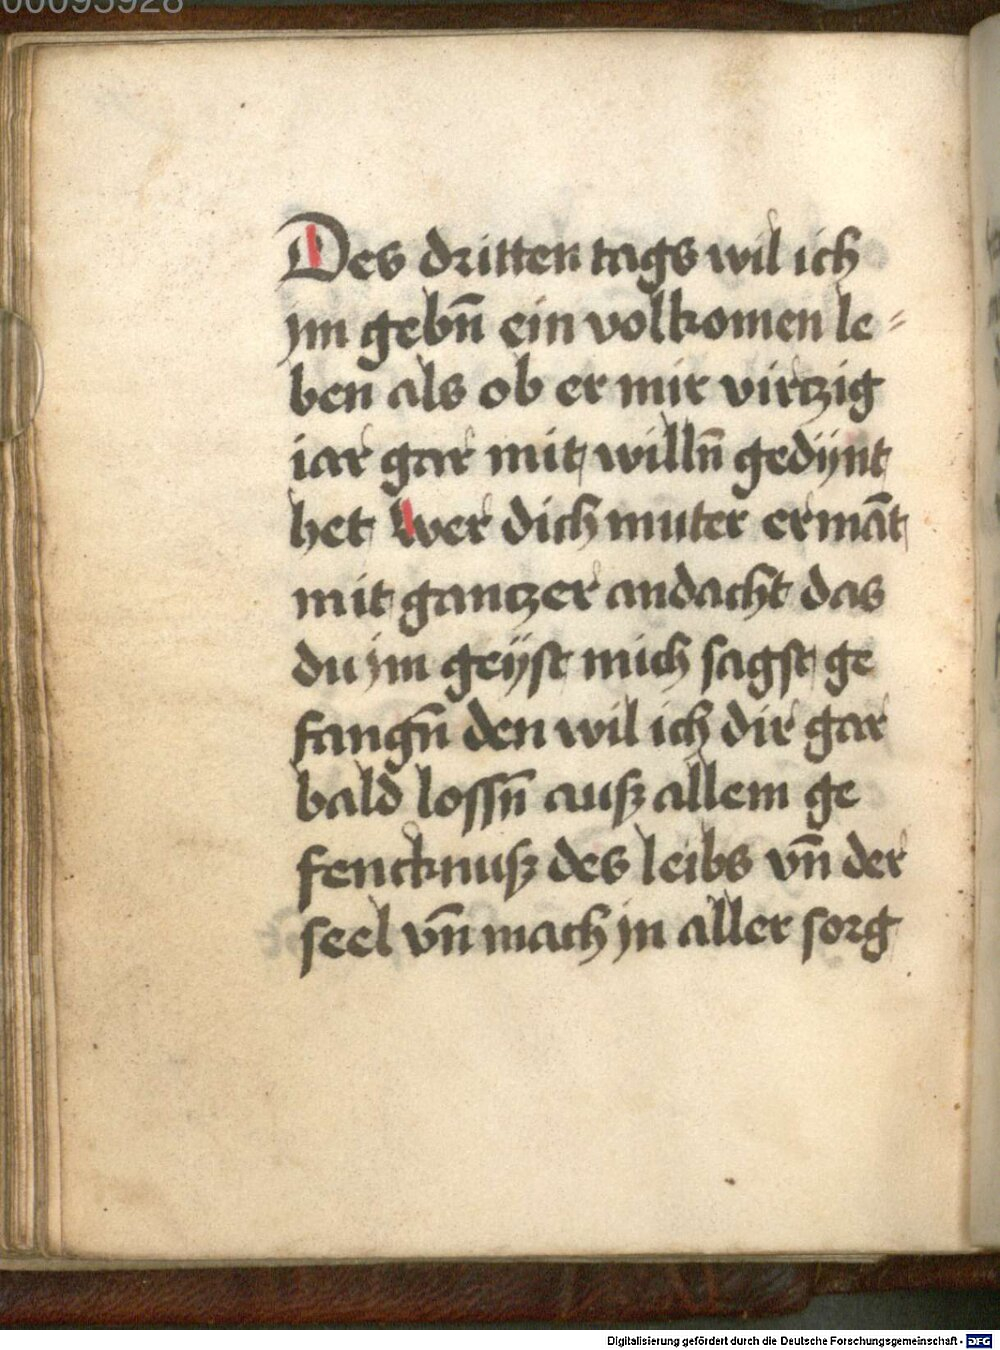 00095928
Des dritten tags wil ich
jm gebn̄ ein volkomen le⸗
ben als ob er mir virtzig
iar gar mit willn̄ gedÿnt
het Wer dich muter ermāt
mit gantzer andacht das
du jm geÿst mich sagst ge
fangn̄ den wil ich dir gar
bald lossn̄ auß allem ge
fencknuß des leibs vn̄ der
seel vn̄ mach jn aller sorg
Digitalisierung gefördert durch die Deutsche Forschungsgemeinschaft - DFG